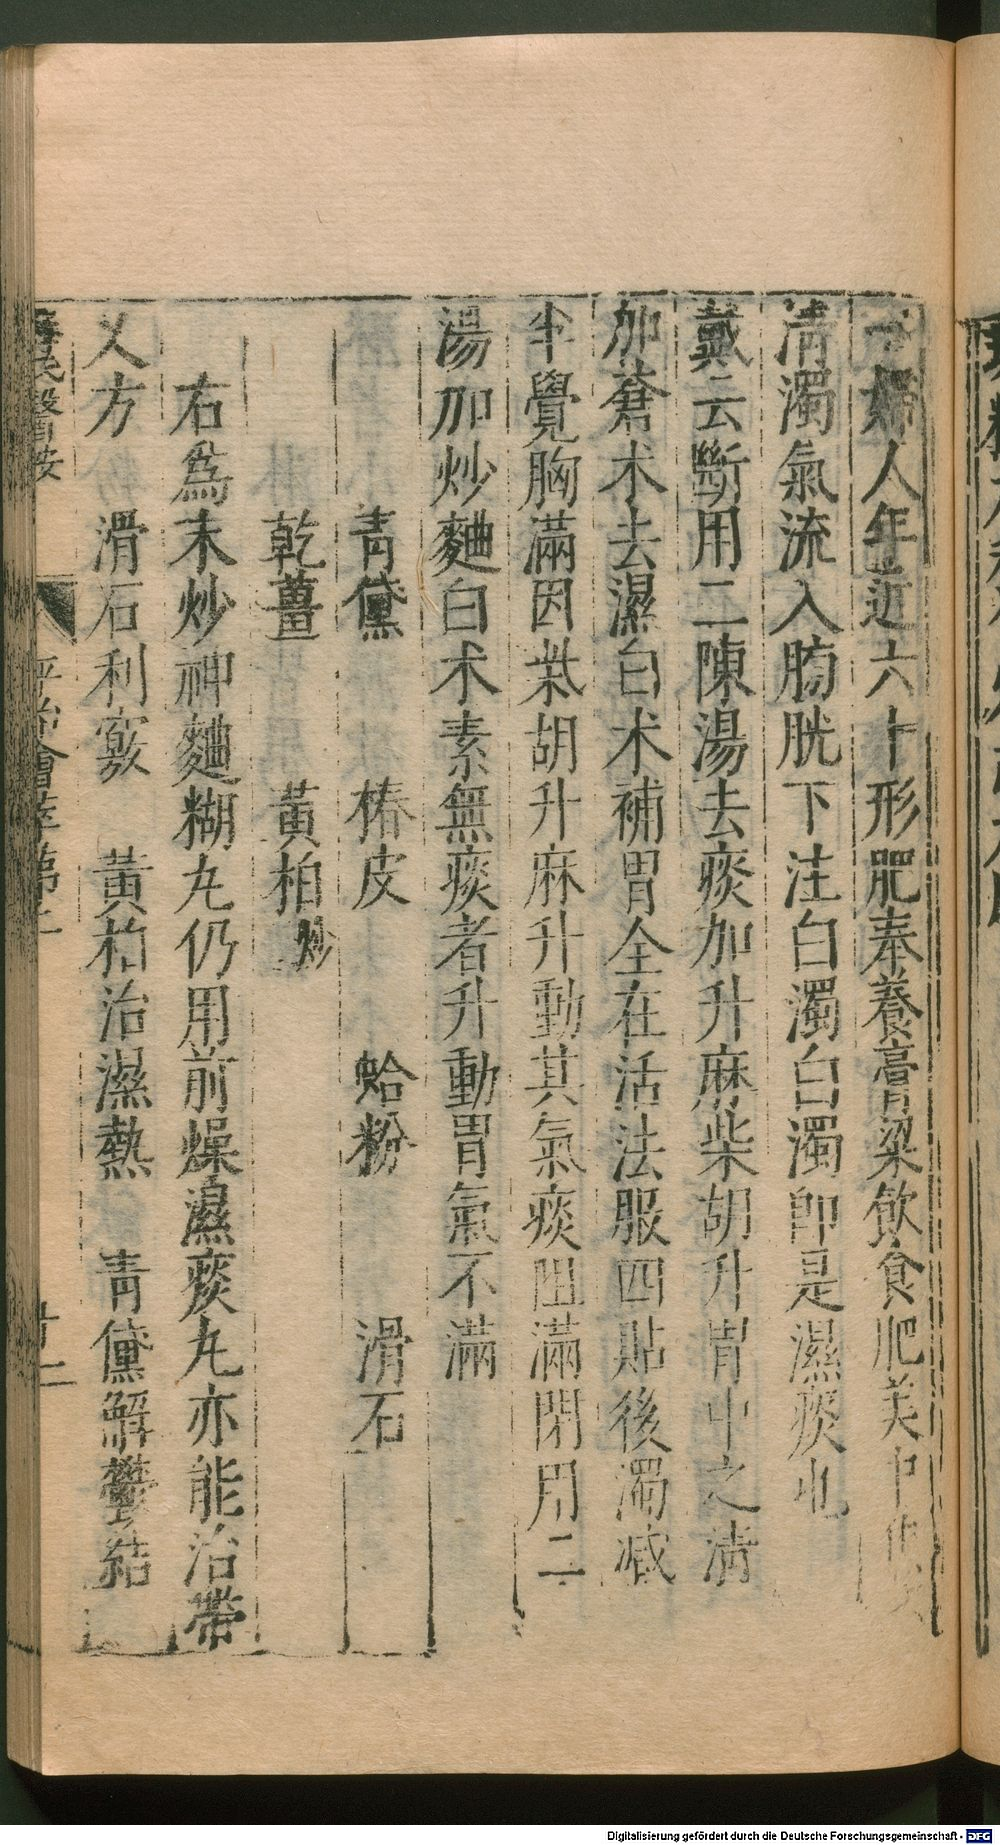 一婦人年近六十形肥奉養膏粱飲食肥美中
清濁氣流入膀胱下注白濁白濁即是濕痰也
戴云斷用二陳湯去痰加升麻柴胡升胃中之清
加蒼术去濕白术補胃全在活法服四貼後濁减
半覺胸滿因柴胡升麻升動其氣痰阻滿閉用二
湯加炒麯白术素無痰者升動胃氣不滿
青黛 椿皮 蛤粉 滑石
乾薑 黃柏炒
右爲末炒神麯糊丸仍用前燥濕痰丸亦能治帶
又方 滑石利竅 黃柏治濕熱 青黛解鬱結
平治會萃第二
Digitalisierung gefördert durch die Deutsche Forschungsgemeinschaft - DFG